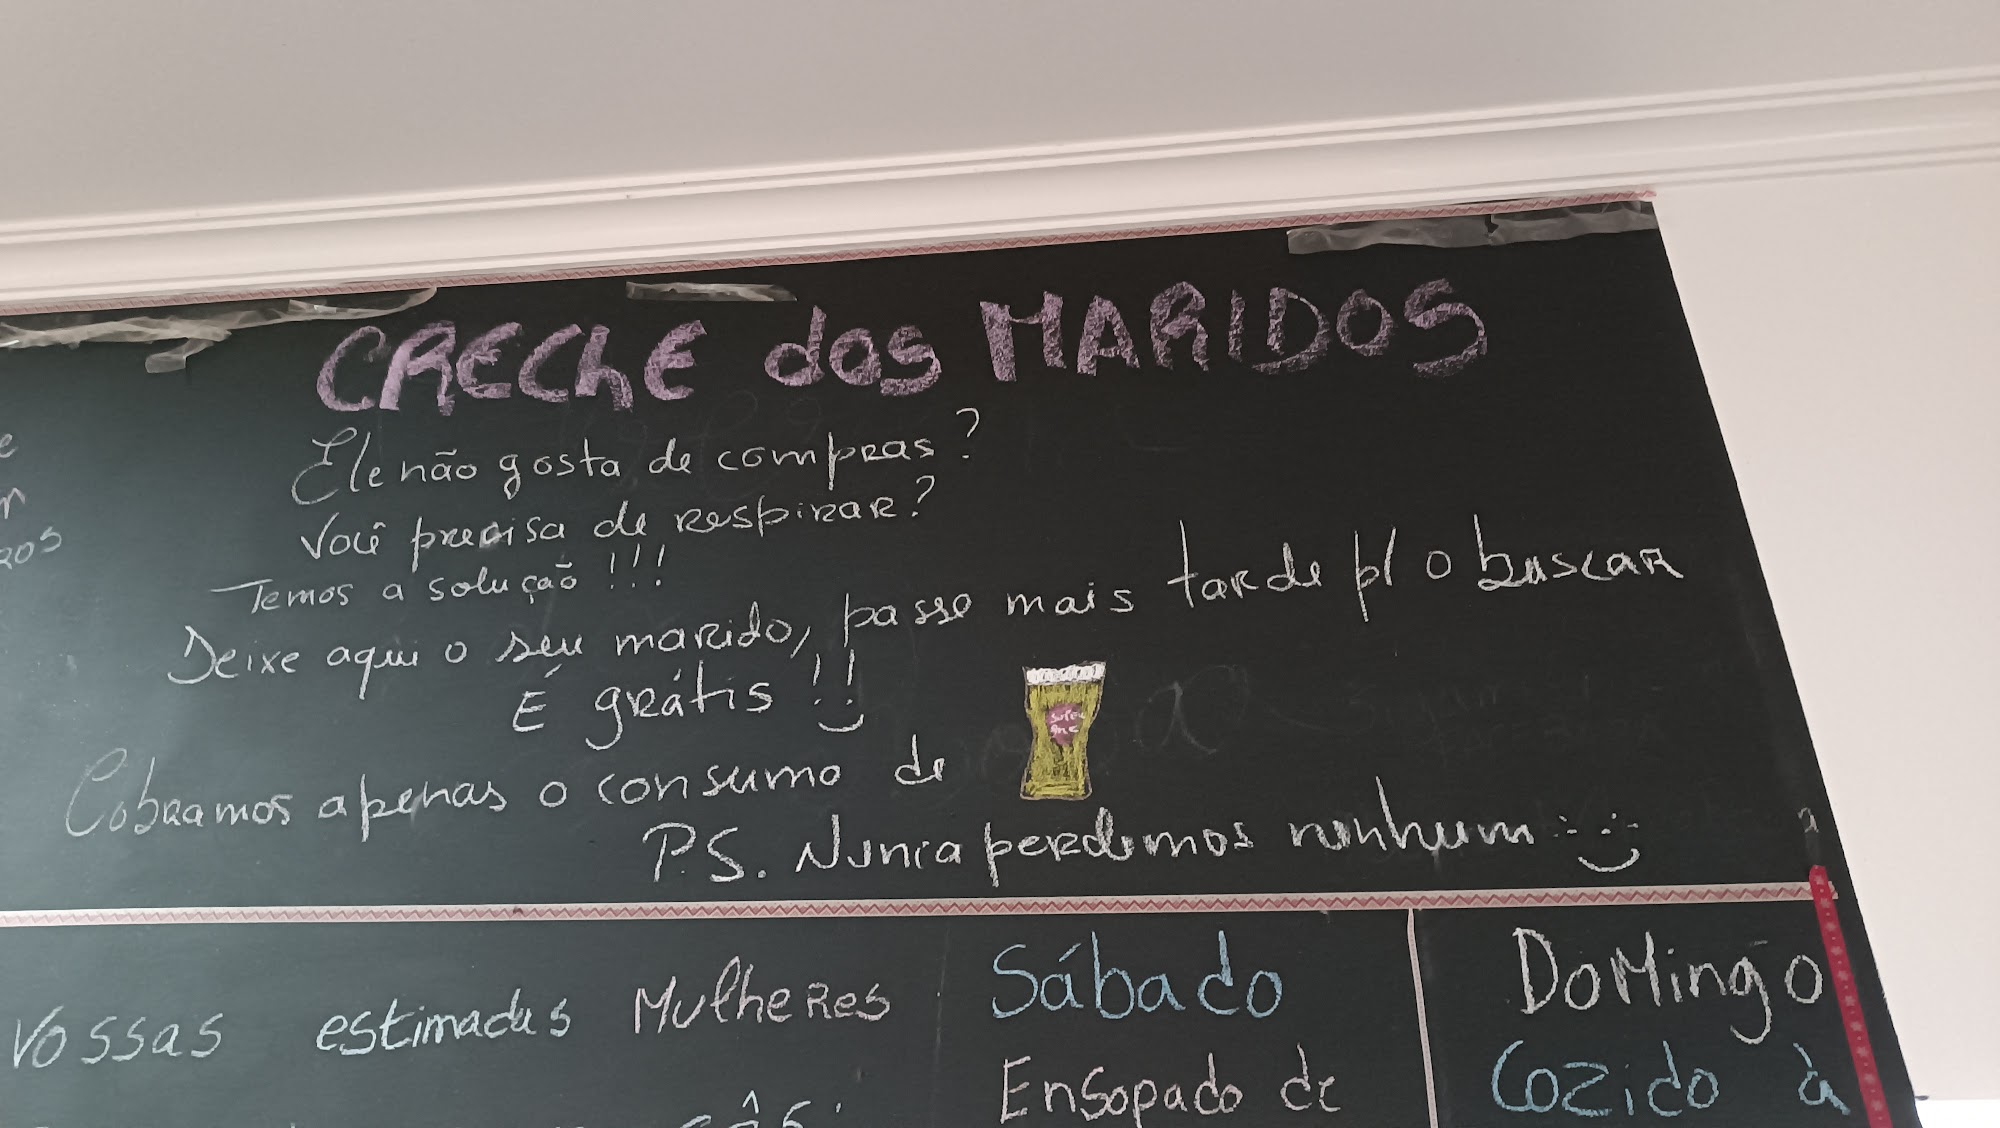 CRECHE dos MARIDOS
Ele não gosta de compras?
Você precisa de respirar?
Temos a solução!!!
Deixe aqui o seu marido, passe mais tarde p/ o buscar
É grátis!!
Cobramos apenas o consumo de
P.S. Nunca perdemos nenhum
Vossas estimadas Mulheres
Sábado
Ensopado de
Domingo
Cozido à